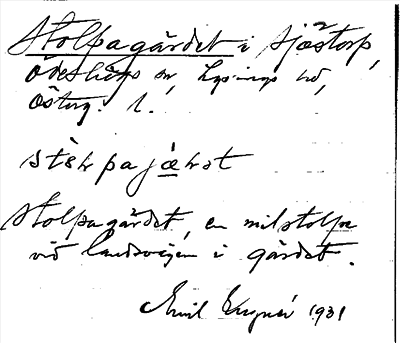 Stolpagärdet i Sjöstorp,
Ödeshögs sn, Lysings hd,
Österg. l.
stèk pa jækət
Stolpagärdet, en milstolpe
vid landsvägen i gärdet.
Emil 1931